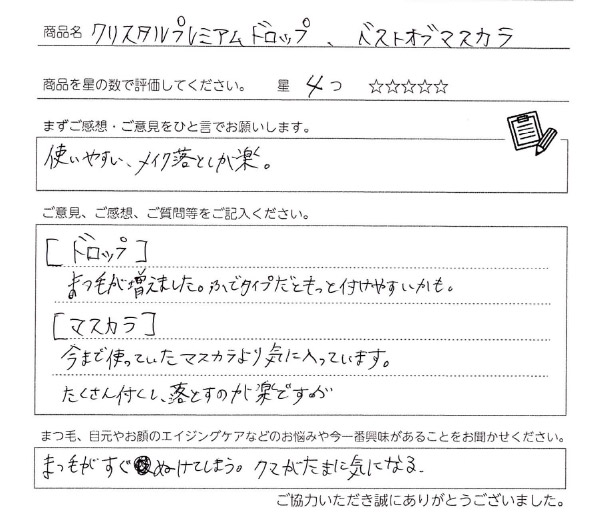 商品名 クリスタルプレミアムドロップ 、 ベストオブマスカラ
商品を星の数で評価してください。 星 4つ ☆☆☆☆☆
まずご感想・ご意見をひと言でお願いします。
使いやすい、メイク落としが楽。
ご意見、ご感想、ご質問等をご記入ください。
[ドロップ]
まつ毛が増えました。ふでタイプだともっと付けやすいかも。
[マスカラ]
今まで使っていたマスカラより気に入っています。
たくさん付くし、落とすのが楽ですが
まつ毛、目元やお顔のエイジングケアなどのお悩みや今一番興味があることをお聞かせください。
まつ毛がすぐぬけてしまう。クマがたまに気になる
ご協力いただき誠にありがとうございました。